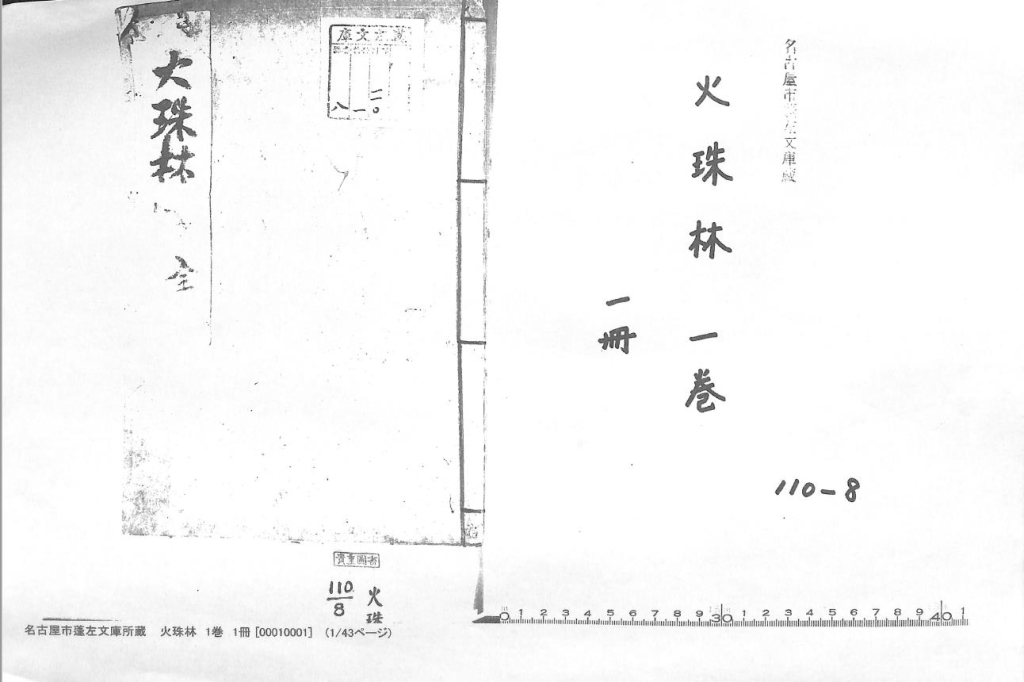 火珠林
一巻
一冊
名古屋市蓬左文庫蔵
110-8
大珠林
全
庫文左蓬
八
一
二〇
貴重圖書
110
8
火珠
名古屋市蓬左文庫所蔵 火珠林 1巻 1冊 [00010001] (1/43ページ)
0 1 2 3 4 5 6 7 8 9 30 1 2 3 4 5 6 7 8 9 40 1